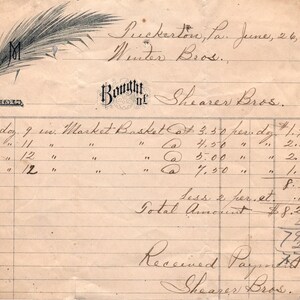 Tuckerton, Pa. June, 26,
Winter Bros.,
Bought of Shearer Bros.
doz 9 in. Market Basket @ $3.50 per doz $1.
" 11 " " " @ 4.50 " " 2.
" 12 " " " @ 5.00 " " 2.
" 12 " " " @ 7.50 " " 1.
8.
Less 2 per.ct.
Total Amount $8.
Received Payment
Shearer Bros.